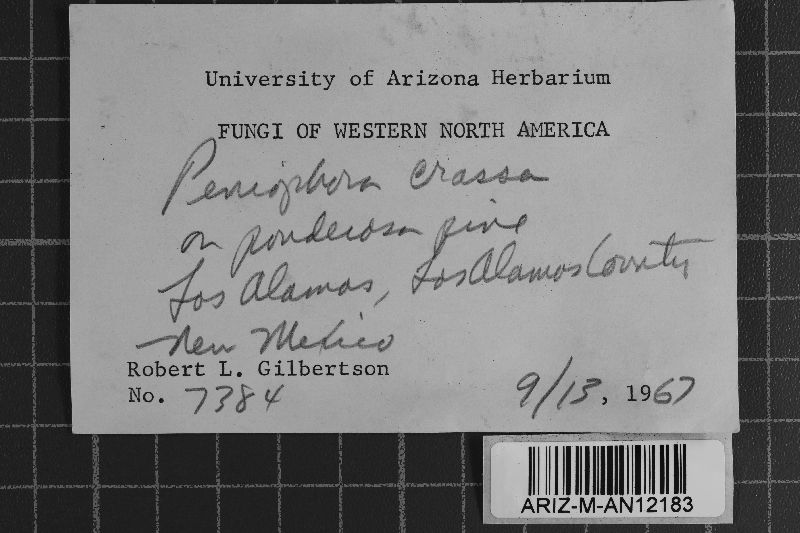 University of Arizona Herbarium
FUNGI OF WESTERN NORTH AMERICA
Peniophora crassa
on ponderosa pine
Los Alamos, Los Alamos County
New Mexico
Robert L. Gilbertson
No. 7384 9/13, 1967
ARIZ-M-AN12183